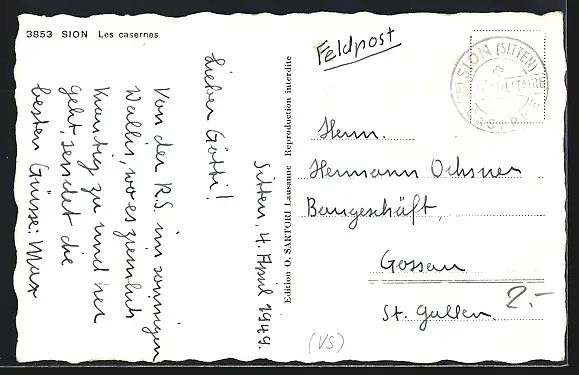 3853 SION Les casernes
Sitten, 4. April 1949.
Lieber Götti!
Von der R.S. im sonnigen
Wallis, wo es ziemlich
hantig zu und her
geht, sendet die
besten Grüsse: Max
Edition O. SARTORI Lausanne Reproduction interdite
Feldpost
SION (SITTEN)
Herrn.
Hermann Ochsner
Baugeschäft,
Gossau
St. Gallen.
2.-
(VS)